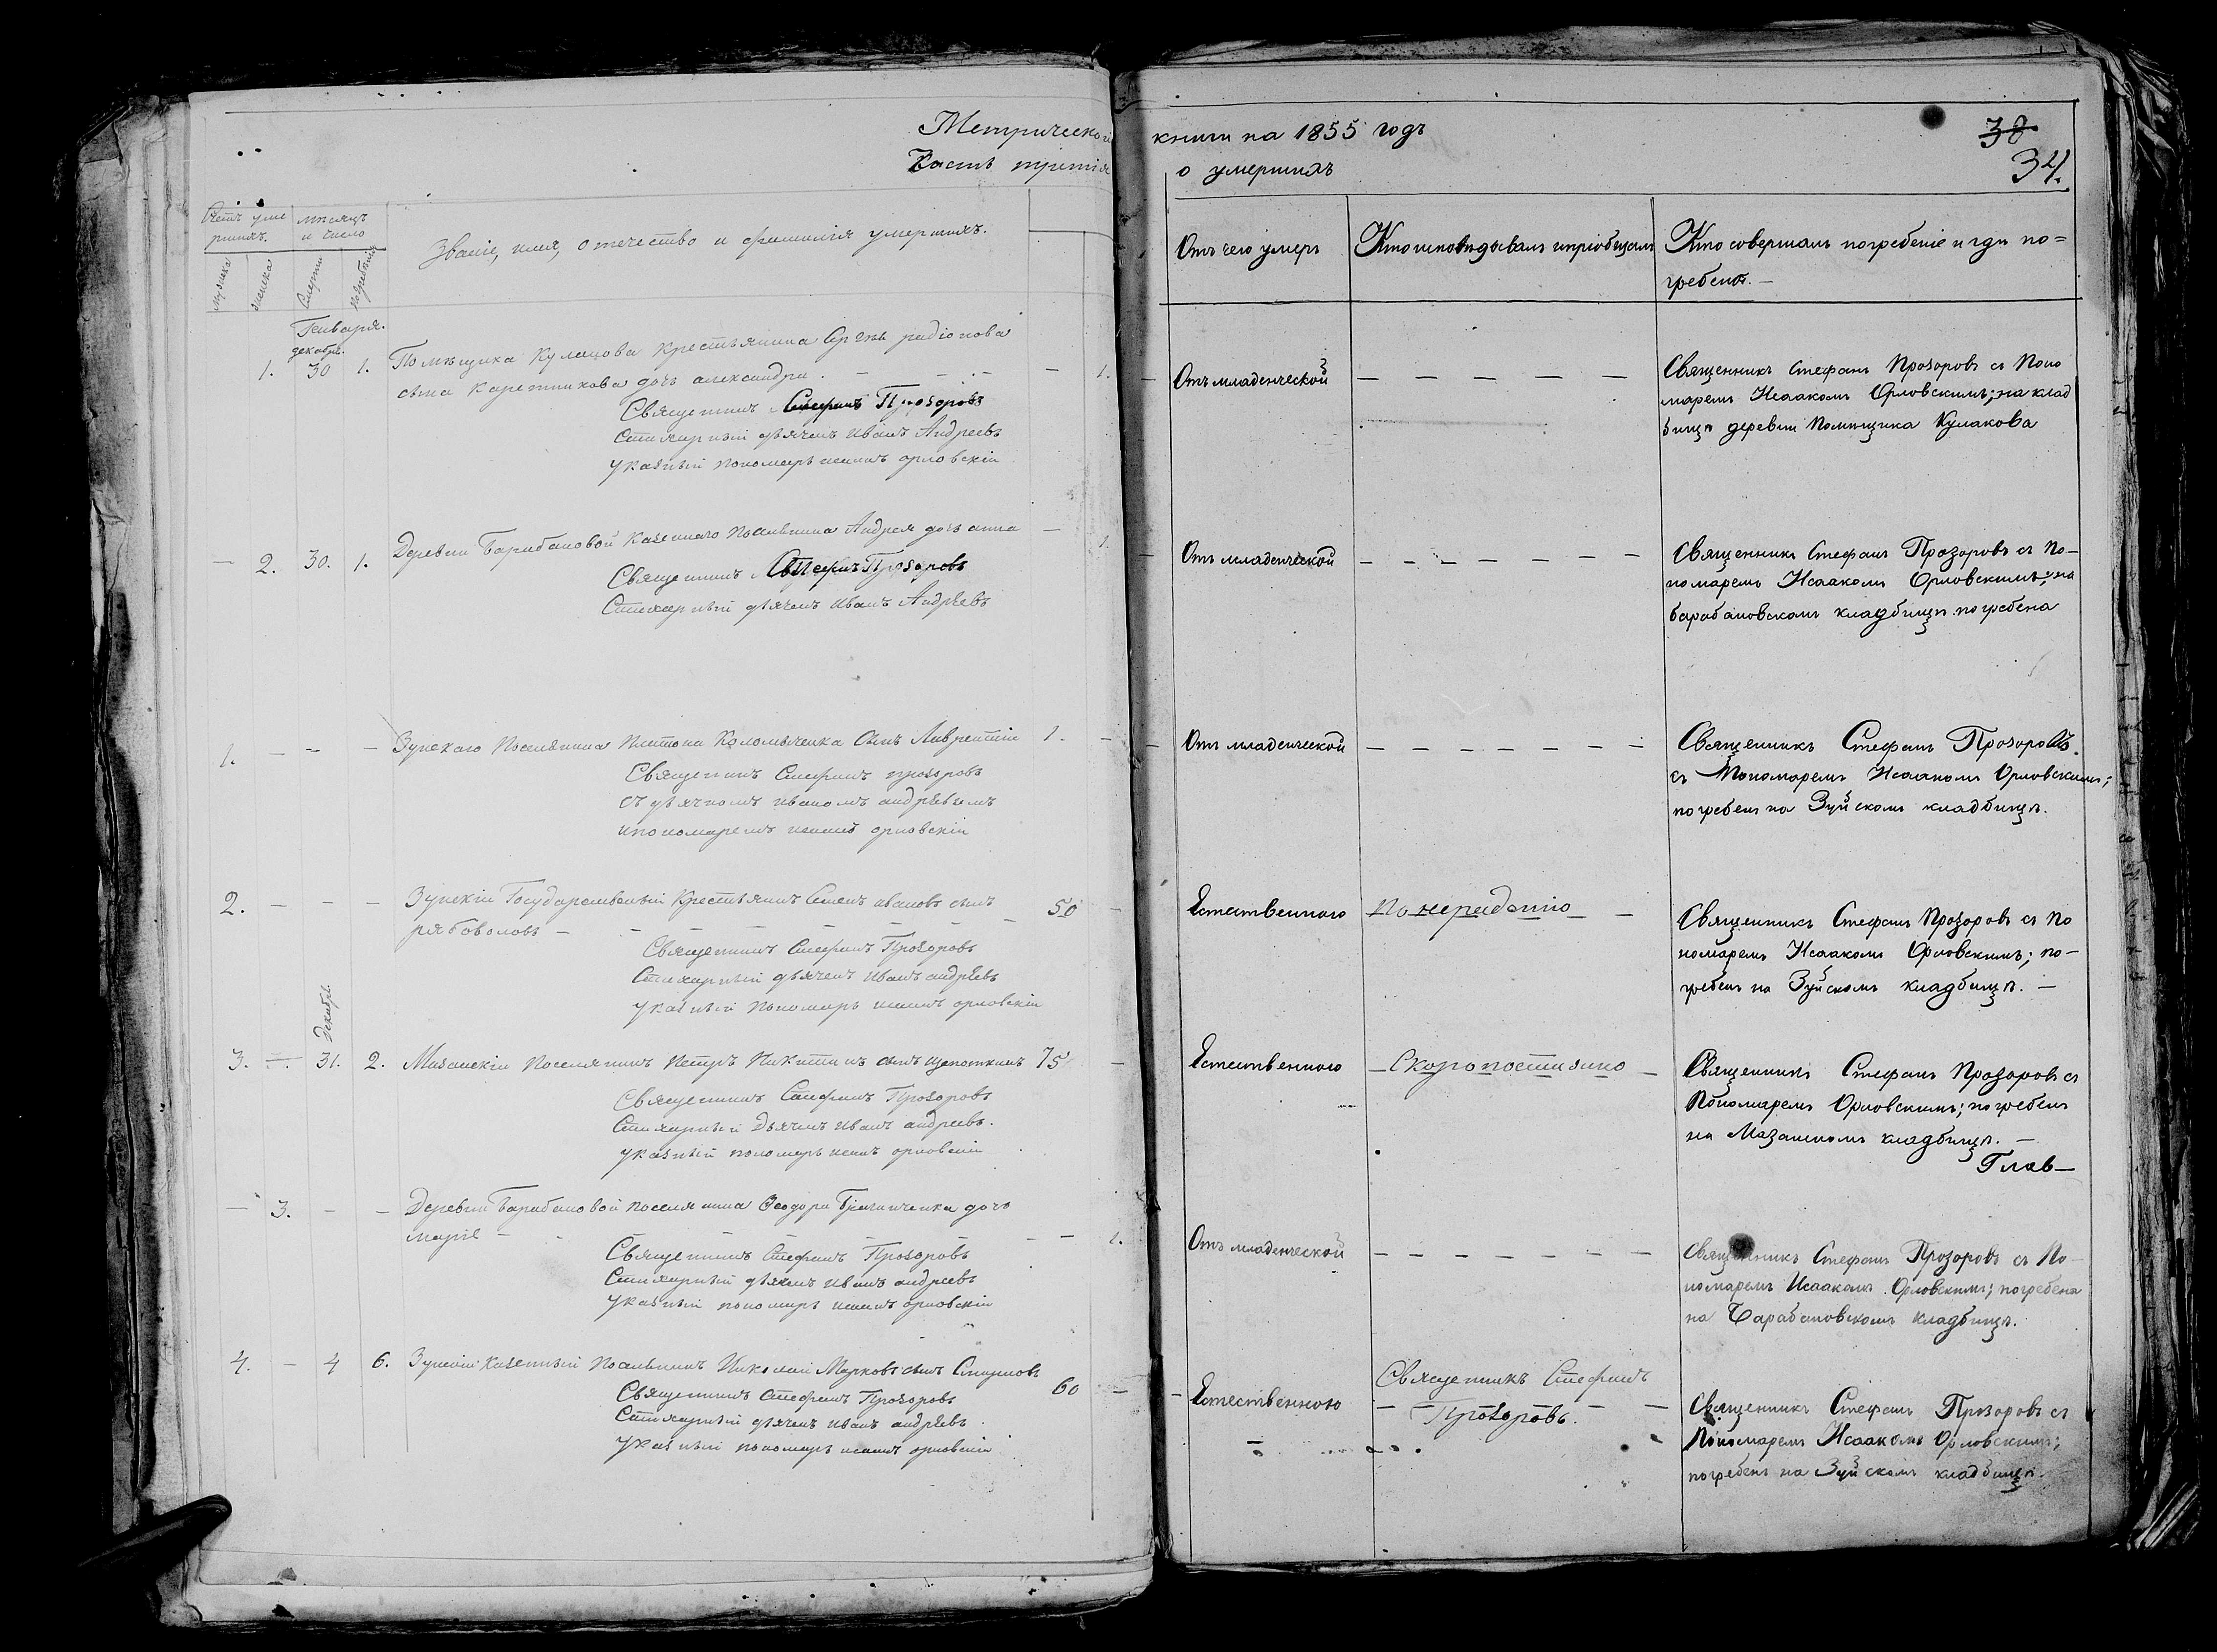 Метрической
Часть третія
Счетъ уме
ршихъ.
мѣсяцъ
и число
мужска
женска
Смерти
погребенія
Званіе, имя, отечество и фамилія умершихъ.
Генваря.
декабр.
1. 30 1. Помѣщика Кулакова Крестьянина
сына Каретникова дочь александра. — 1.
Священникъ Стефанъ Прозоровъ
Стихарный дьячекъ Иванъ Андреевъ
указный пономарь орловскій
— 2. 30. 1. Деревни Барабановой Казеннаго поселянина Андрея дочь анна — 1.
Священникъ Стефанъ Прозоровъ
Стихарный дьячекъ Иванъ Андреевъ
1. — — — Зуйскаго поселянина Коломыченка сынъ Лаврентій 1. —
Священникъ Стефанъ прозоровъ
съ дьячкомъ иваномъ андреевымъ
и пономаремъ орловскій
2. — — — Зуйскій Государственный Крестьянинъ Семенъ ивановъ сынъ
рябоволовъ — — — — — 50 —
Священникъ Стефанъ Прозоровъ
Стихарный дьячекъ Иванъ андреевъ
указный пономарь орловскій
декабр.
3. — 31. 2. Мазанскій поселянинъ петръ Никитинъ сынъ щепоткинъ 75 —
Священникъ Стефанъ Прозоровъ
Стихарный Дьячекъ Иванъ андреевъ.
указный пономарь орловскій
— 3. — — Деревни Барабановой поселянина Ѳеодора дочь
марія — — — — — — 1.
Священникъ Стефанъ Прозоровъ
Стихарный дьячекъ Иванъ андреевъ
указный пономарь орловскій
4. — 4 6. Зуйскій казенный поселянинъ Николай Марковъ сынъ Смирновъ 60 —
Священникъ Стефанъ Прозоровъ
Стихарный дьячекъ иванъ андреевъ
указный пономарь орловскій
книги на 1855 годъ
о умершихъ
38
34.
Отъ чего умеръ
Кто исповѣдывалъ и пріобщалъ
Кто совершалъ погребеніе и гдѣ по=
гребены. —
Отъ младенческой — — — — — —
Священникъ Стефанъ Прозоровъ съ Поно
маремъ Исаакомъ Орловскимъ; на клад
бищѣ деревни помѣщика Кулакова
Отъ младенческой — — — — — — —
Священникъ Стефанъ Прозоровъ съ По—
номаремъ Исаакомъ Орловскимъ; на
барабановскомъ кладбищѣ погребена
Отъ младенческой — — — — — — —
Священникъ Стефанъ Прозоровъ
съ Пономаремъ Исаакомъ Орловскимъ;
погребенъ на Зуйскомъ кладбищѣ.
Естественною
По нерадѣнію —
Священникъ Стефанъ Прозоровъ съ По
номаремъ Исаакомъ Орловскимъ; по—
гребенъ на Зуйскомъ кладбищѣ. —
Естественною
— Скоропостижно —
Священникъ Стефанъ Прозоровъ съ
Пономаремъ Орловскимъ; погребенъ
на Мазанскомъ кладбищѣ. —
Глав—
Отъ младенческой — — — — — — —
Священникъ Стефанъ Прозоровъ съ По—
номаремъ Исаакомъ Орловскимъ; погребена
на Барабановскомъ кладбищѣ.
Естественною
Священникъ Стефанъ
Прозоровъ.
Священникъ Стефанъ Прозоровъ съ
Пономаремъ Исаакомъ Орловскимъ;
погребенъ на Зуйскомъ кладбищѣ.